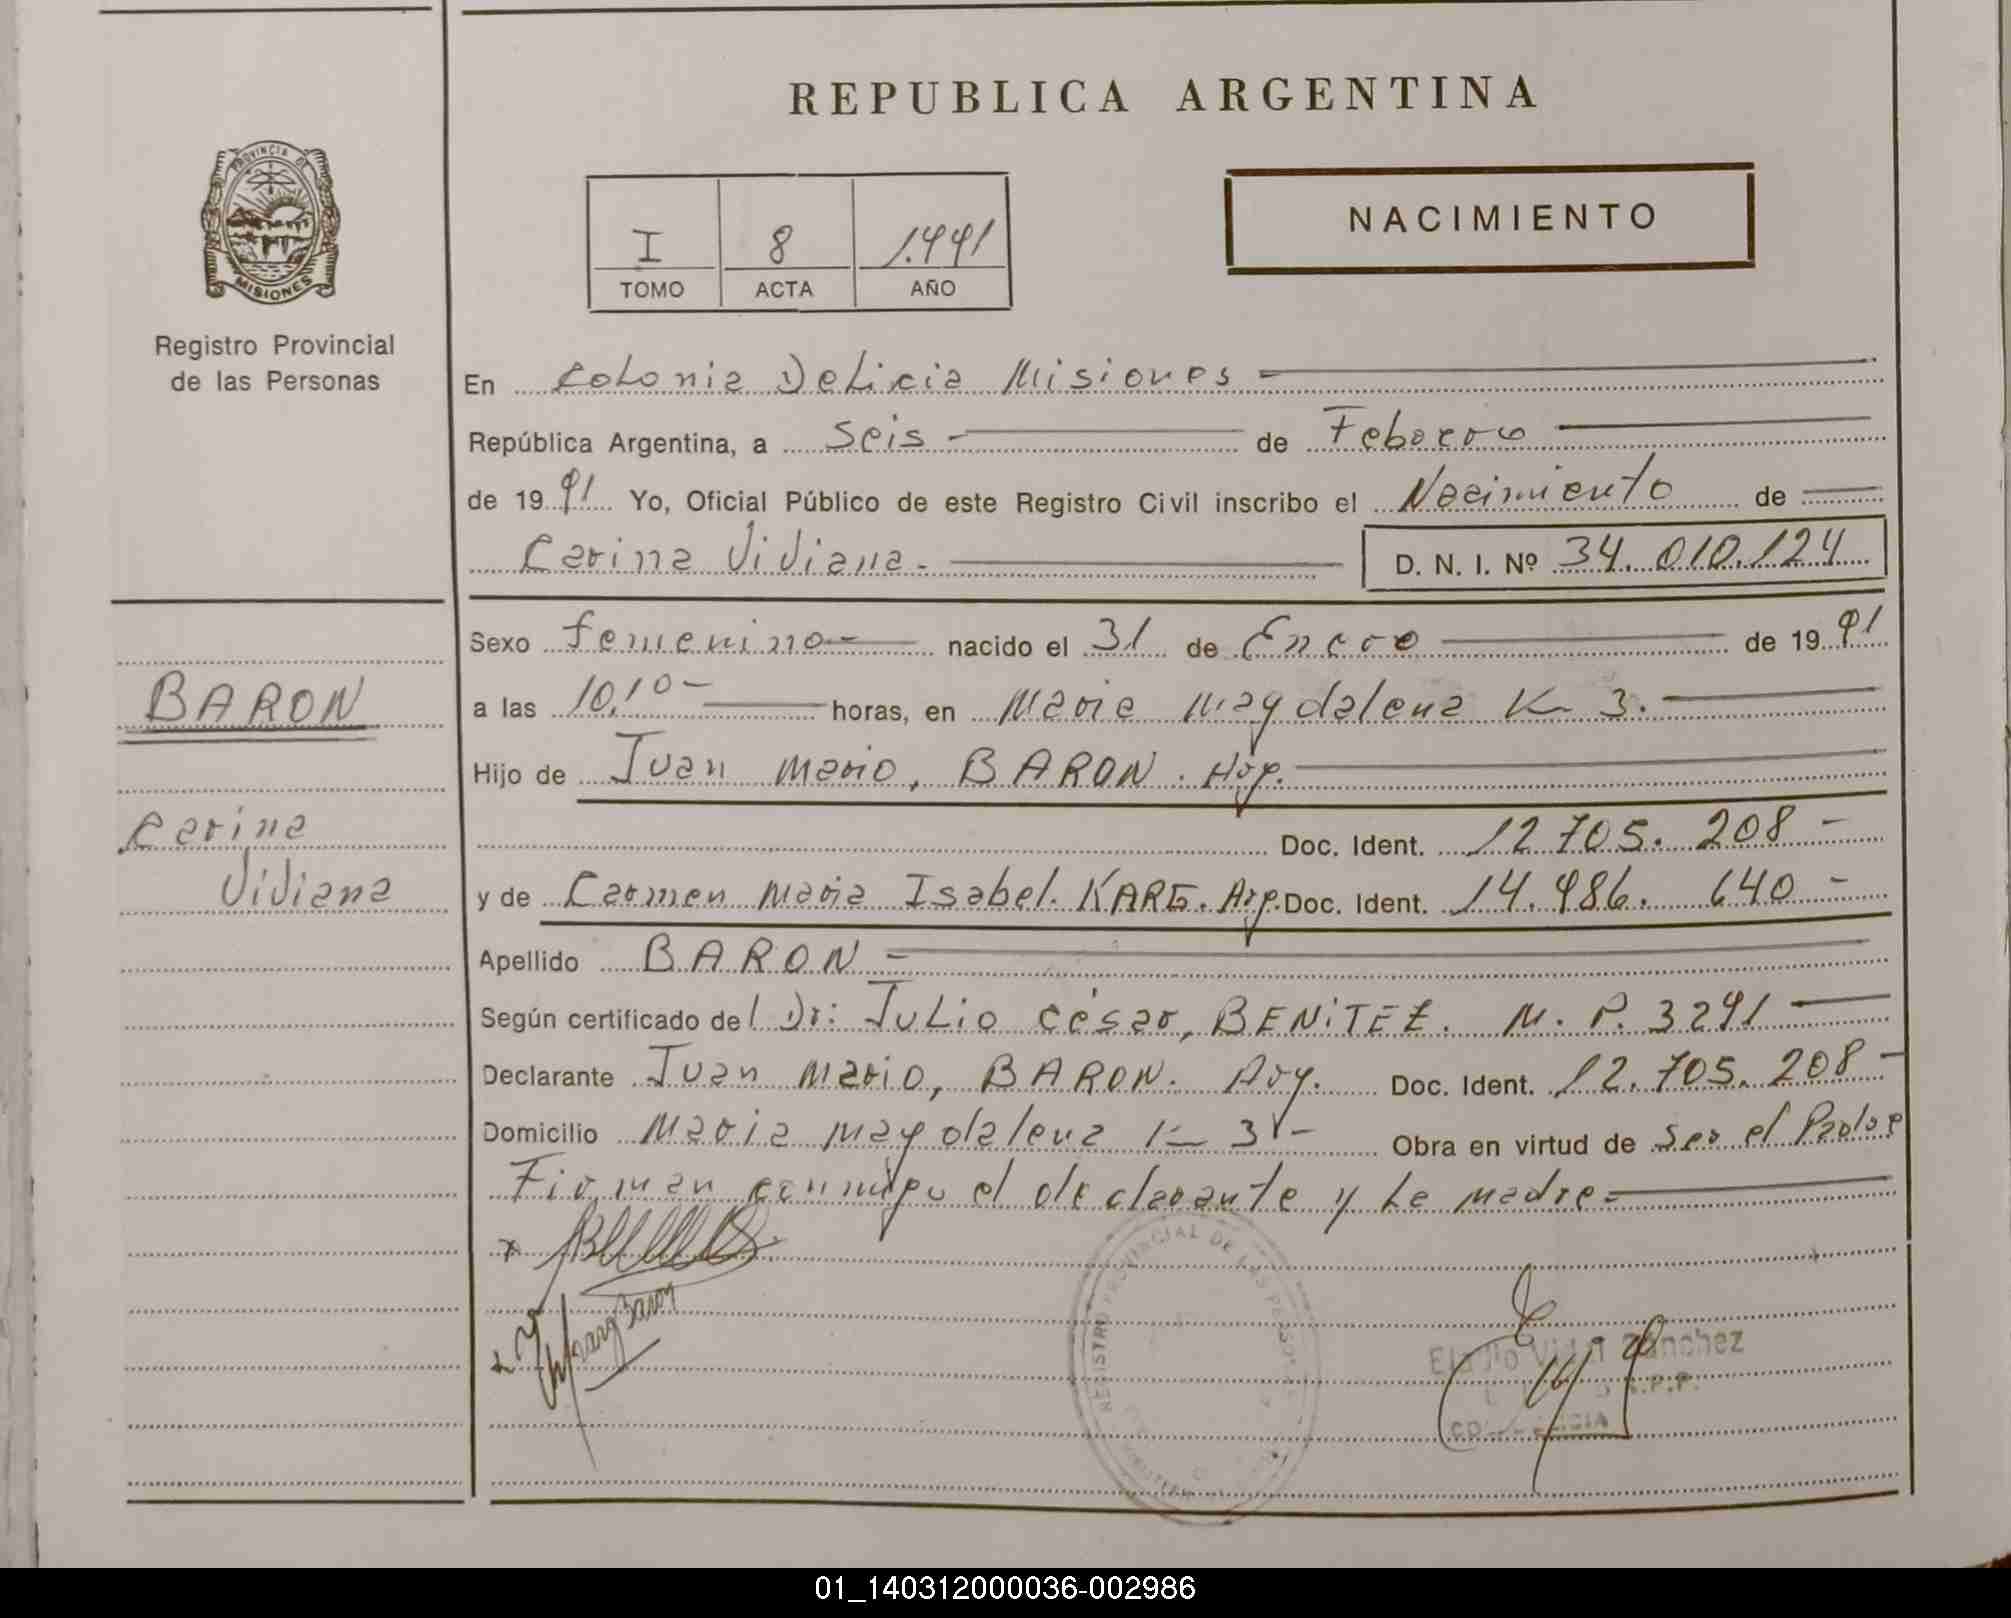 REPUBLICA ARGENTINA
PROVINCIA DE
MISIONES
Registro Provincial
de las Personas
I 8 1.991
TOMO ACTA AÑO
NACIMIENTO
En Colonia Delicia Misiones
República Argentina, a Seis - de Febrero
de 19 91 Yo, Oficial Público de este Registro Civil inscribo el Nacimiento de
Carina Viviana - D. N. I. Nº 34.010.124
Sexo femenino - nacido el 31 de Enero de 19 91
a las 10,10 - horas, en Maria Magdalena K 3.
Hijo de Juan Mario, BARON. Arg.
Doc. Ident. 12.705.208 -
y de Carmen Maria Isabel. KARG. Arg. Doc. Ident. 14.986.640 -
Apellido BARON -
Según certificado del Dr: Julio César, BENiTEZ. M.P. 3291
Declarante Juan Mario, BARON. Arg. Doc. Ident. 12.705.208 -
Domicilio Maria Magdalena K 3 - Obra en virtud de Ser el Padre
Firman conmigo el declarante y La madre
BARON
Carina
Viviana
REGISTRO PROVINCIAL DE LAS PERSONAS
Sánchez
01_140312000036-002986